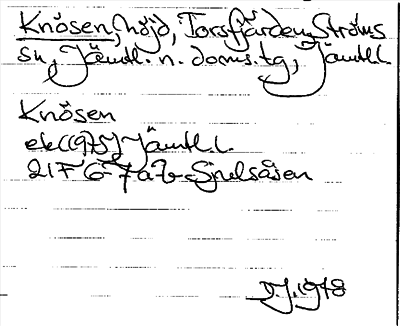 Knösen, höjd, Torsfjärden, Ströms
sn, Jämtl. n. doms.tg, Jämtl.l.
Knösen
ek (1975) Jämtl.l.
21F 6-7 a-b Sjulsåsen
D.J. 1978